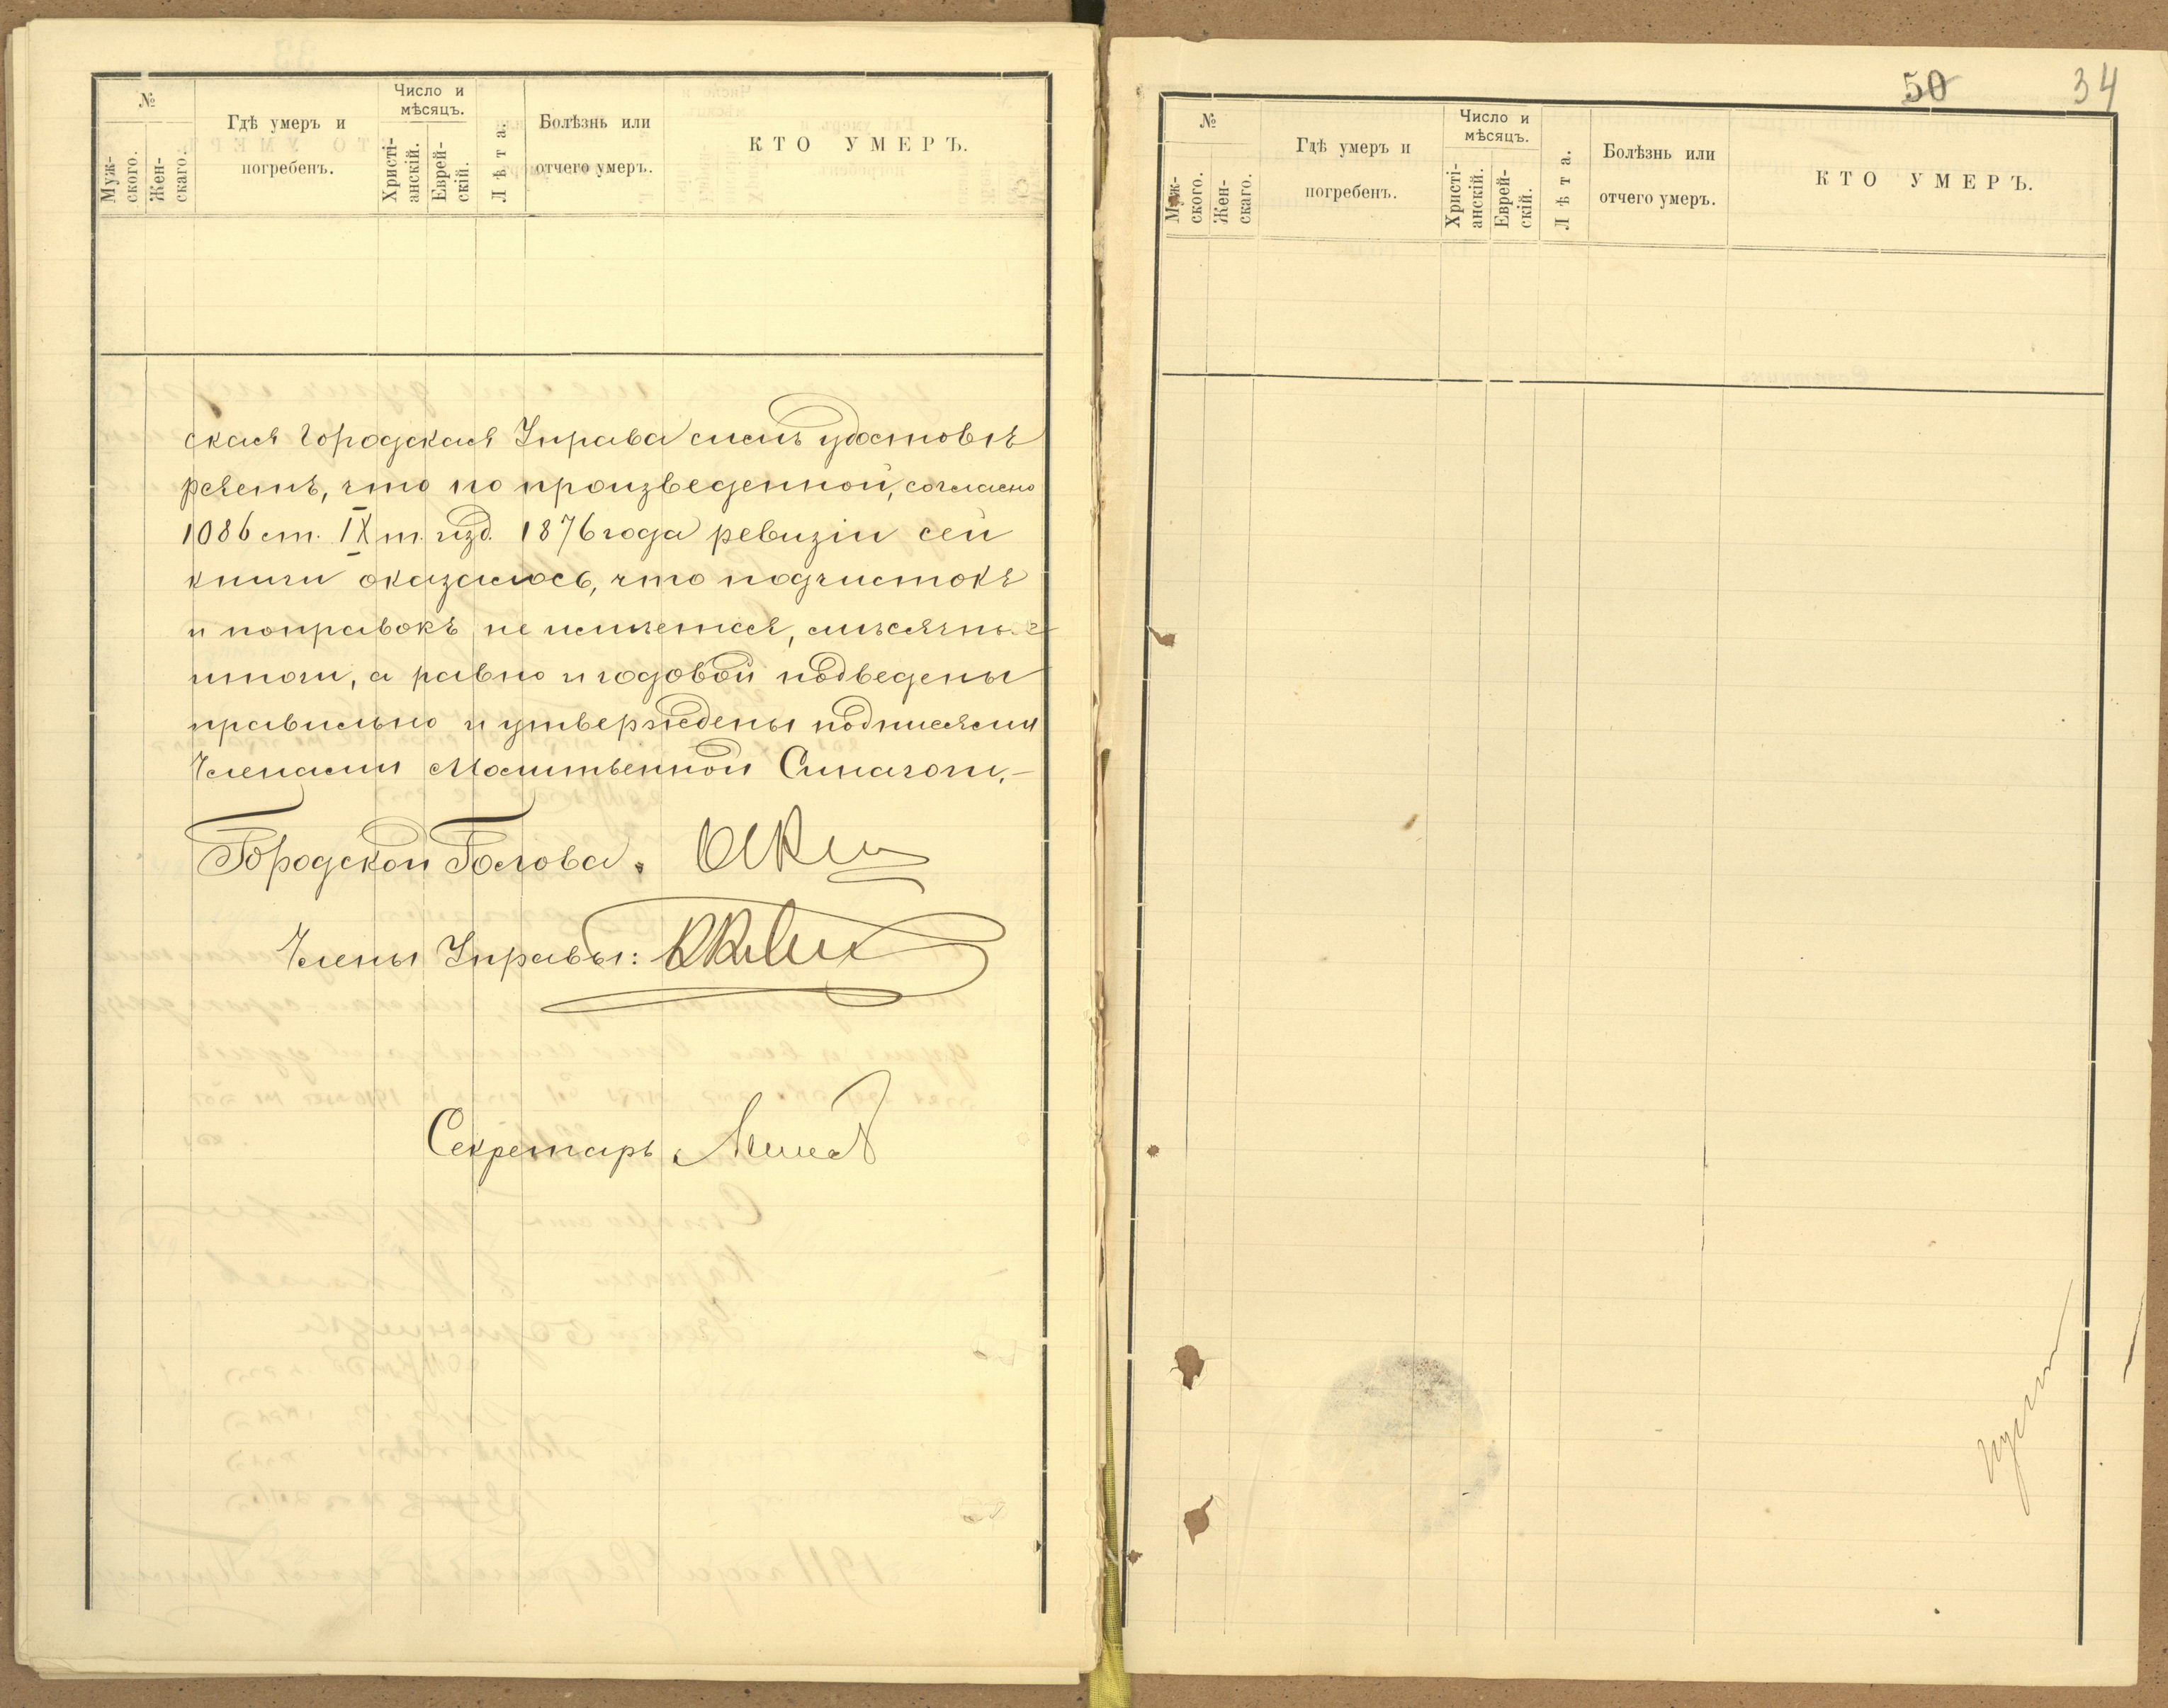 №
Муж-
ского.
Жен-
скаго.
Гдѣ умеръ и
погребенъ.
Число и
мѣсяцъ.
Христі-
анскій.
Еврей-
скій.
Лѣта.
Болѣзнь или
отчего умеръ.
КТО УМЕРЪ.
ская Городская Управа симъ удостовѣ
ряетъ, что по произведенной, согласно
1086 ст. IX т. изд. 1876 года ревизіи сей
книги оказалось, что подчистокъ
и поправокъ не имѣется, мѣсячные
итоги, а равно и годовой подведены
правильно и утверждены подписями
Членами Молитвенной Синагоги.—
Городской Голова.
Члены Управы:
Секретарь
50 34
№
Муж-
ского.
Жен-
скаго.
Гдѣ умеръ и
погребенъ.
Число и
мѣсяцъ.
Христі-
анскій.
Еврей-
скій.
Лѣта.
Болѣзнь или
отчего умеръ.
КТО УМЕРЪ.